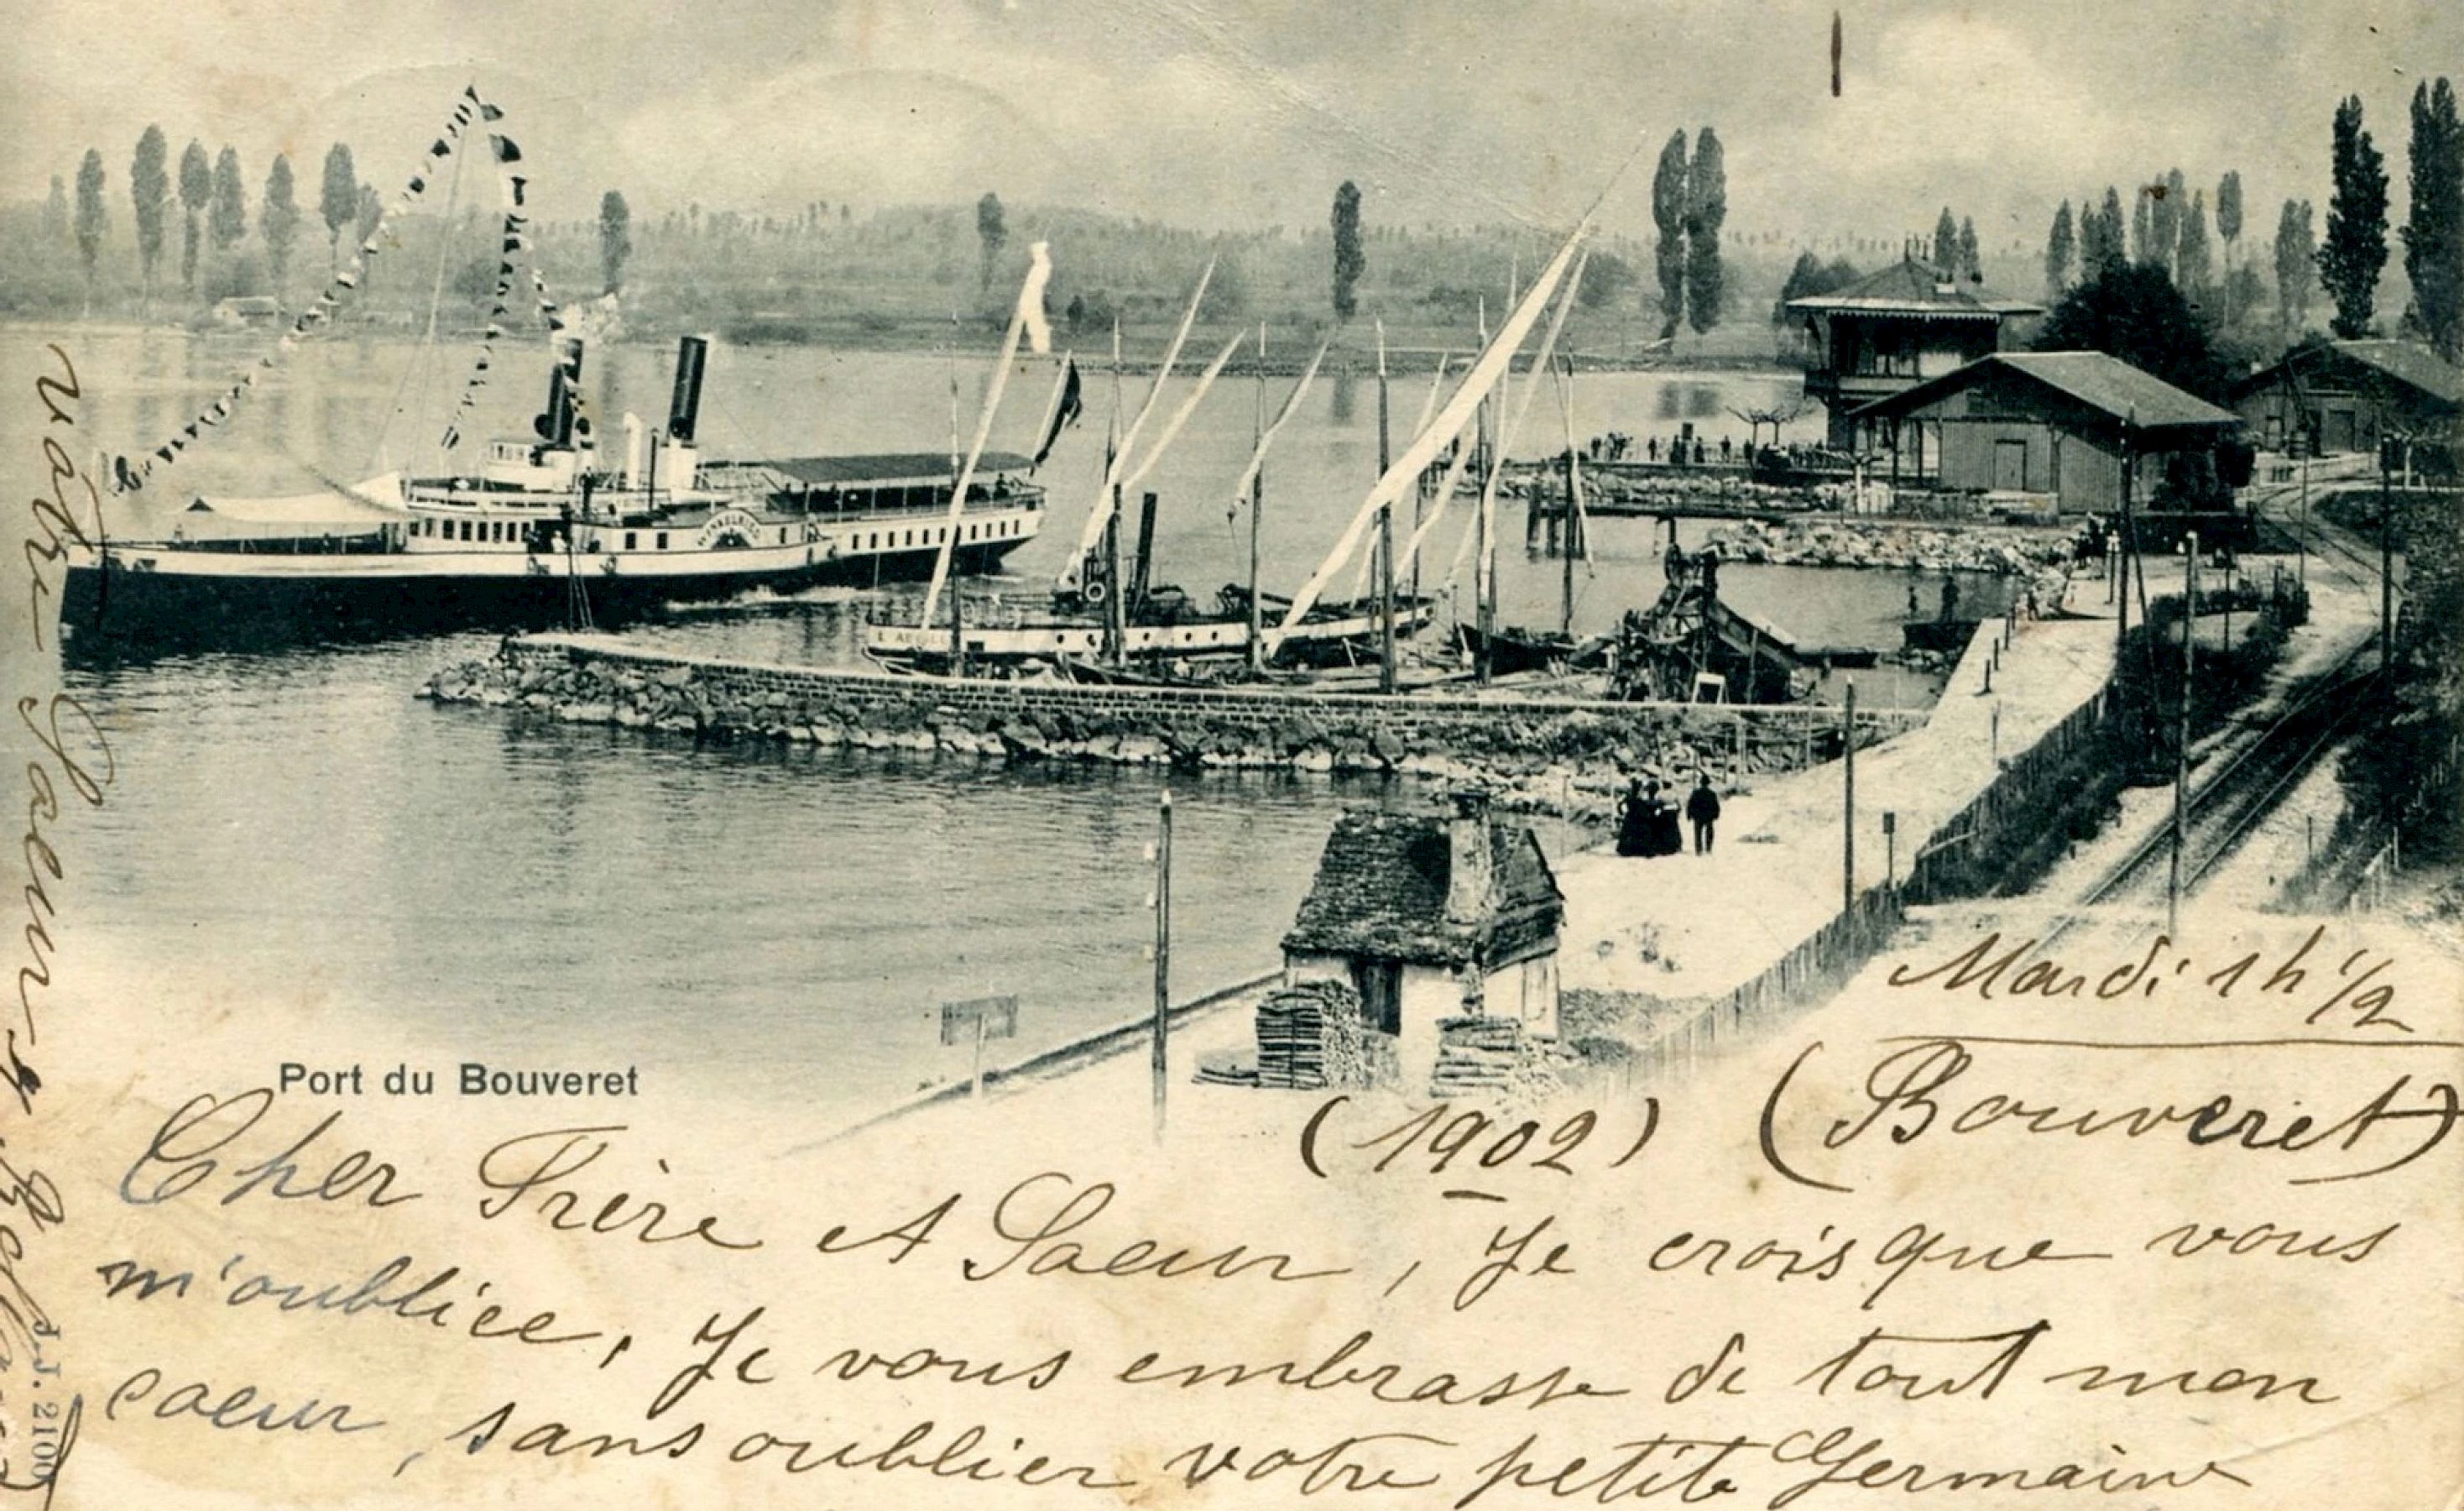 Mardi 1 h 1/2
Port du Bouveret
(1902) (Bouveret)
Cher Frère et Soeur, Je crois que vous
m'oubliee, Je vous embrasse de tout mon
coeur, sans oublier votre petite Germaine
votre Soeur
J.J. 2100